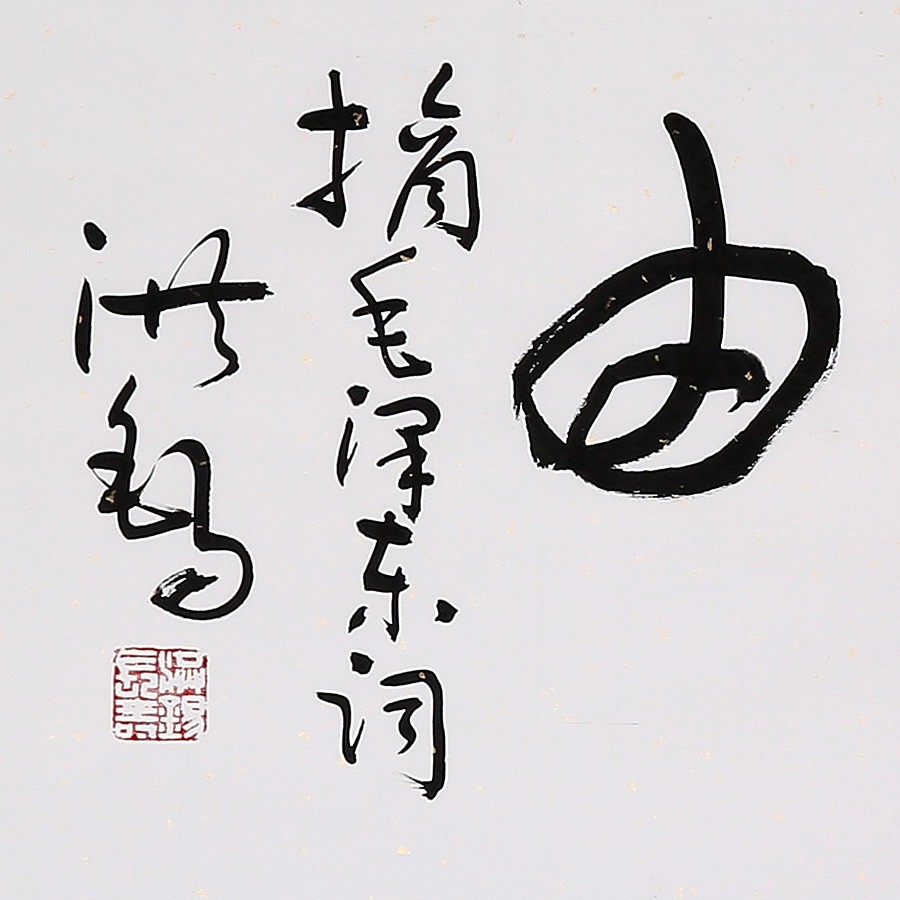 由
摘毛泽东词
洪